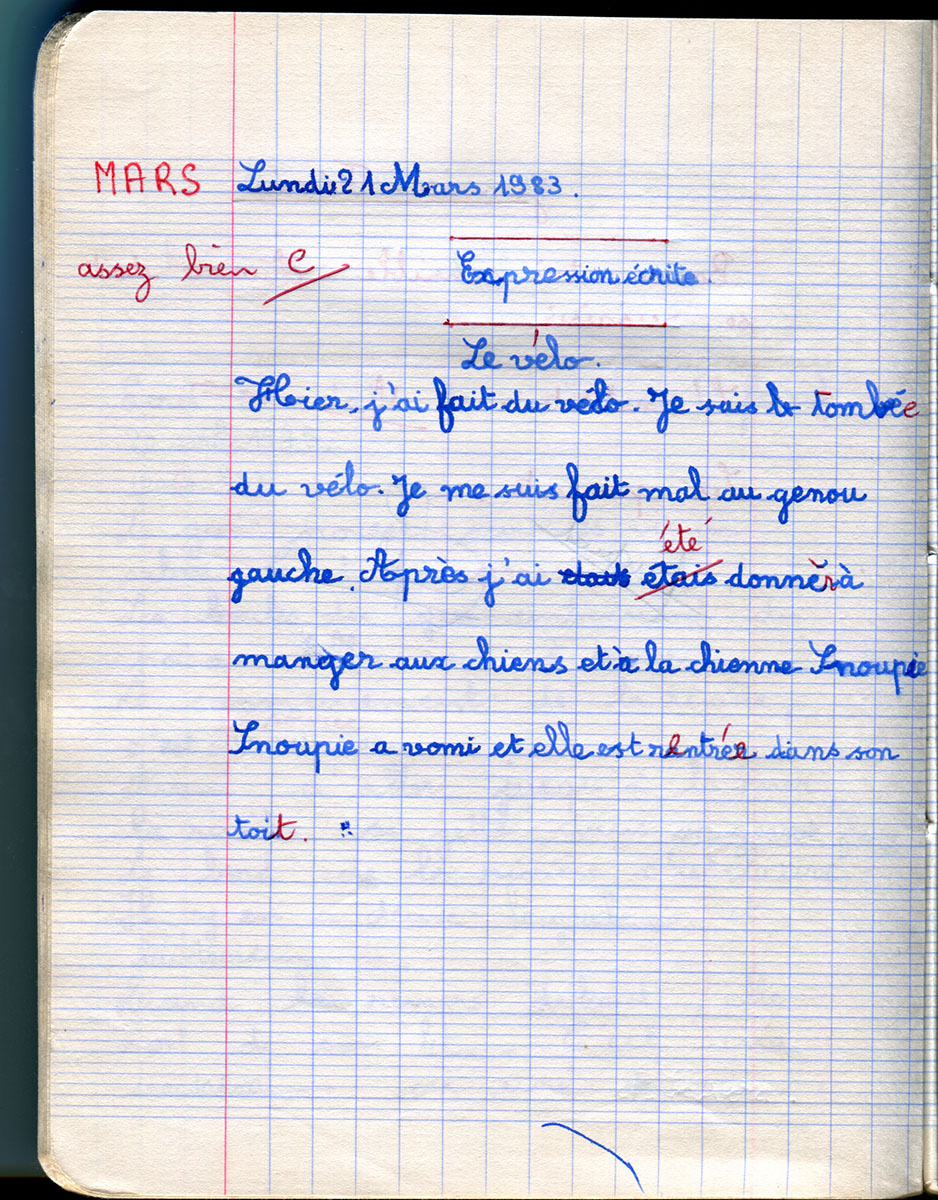 MARS Lundi 21 Mars 1983.
assez bien C Expression écrite.
Le vélo.
Hier, j'ai fait du vélo. Je suis tombée
du vélo. Je me suis fait mal au genou
été
gauche. Après j'ai etais donner à
manger aux chiens et à la chienne Snoupie
Snoupie a vomi et elle est rentrée dans son
toit.